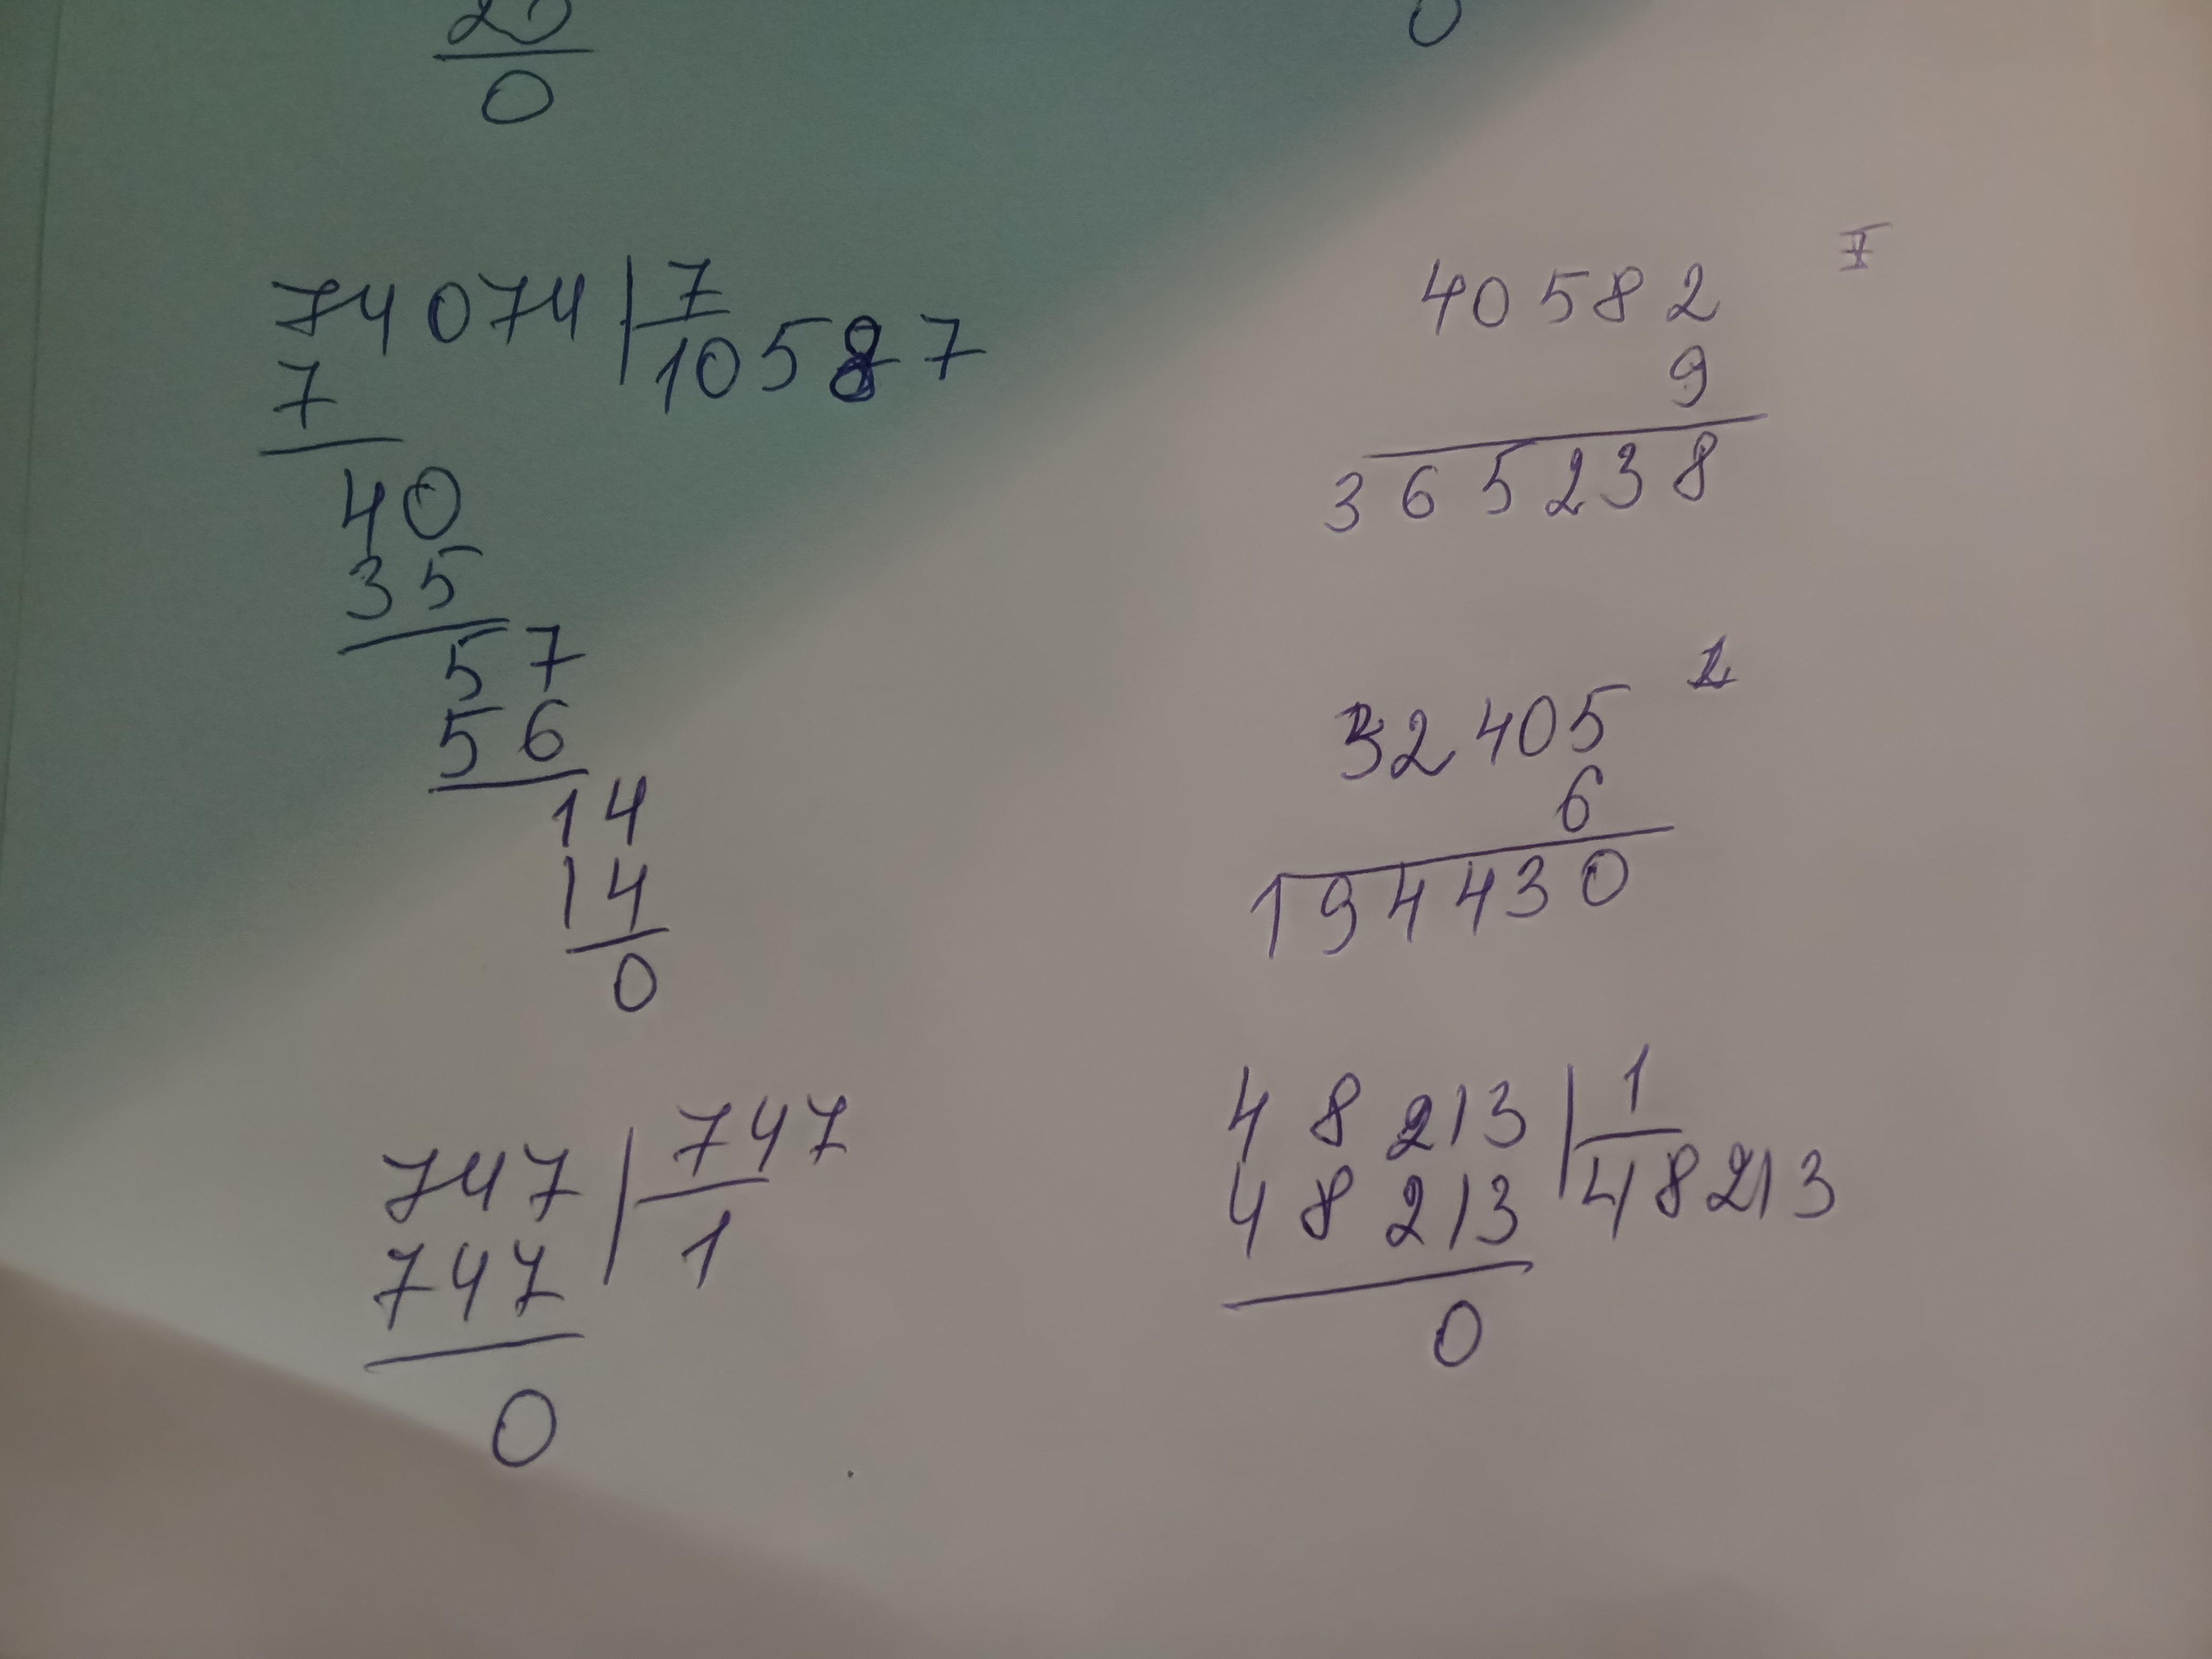 20
0
0
74074 | 7
10587
7
40
35
57
56
14
14
0
747 | 747
747
1
0
40582
9
365238
32405
6
194430
48213 | 1
48213
48213
0